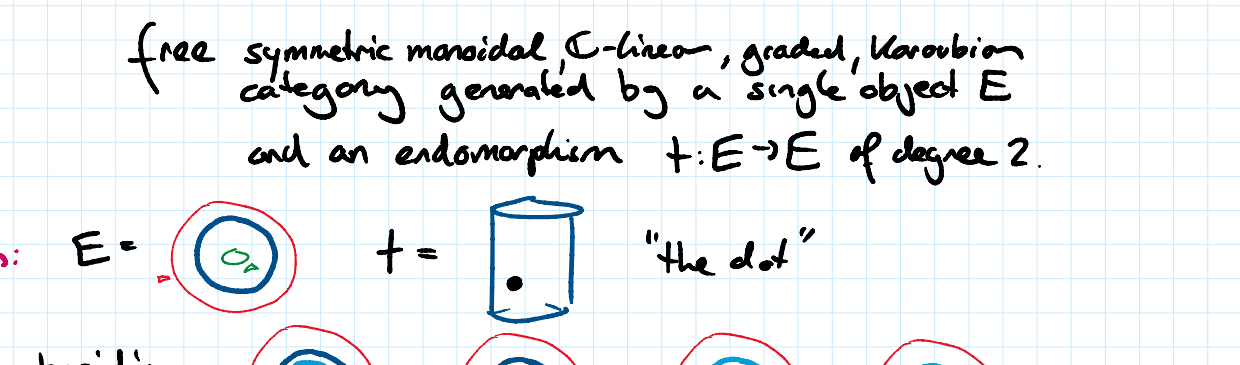 free symmetric monoidal, ℂ-linear, graded, Karoubian
category generated by a single object E
and an endomorphism t: E → E of degree 2.
E = t = "the dot"